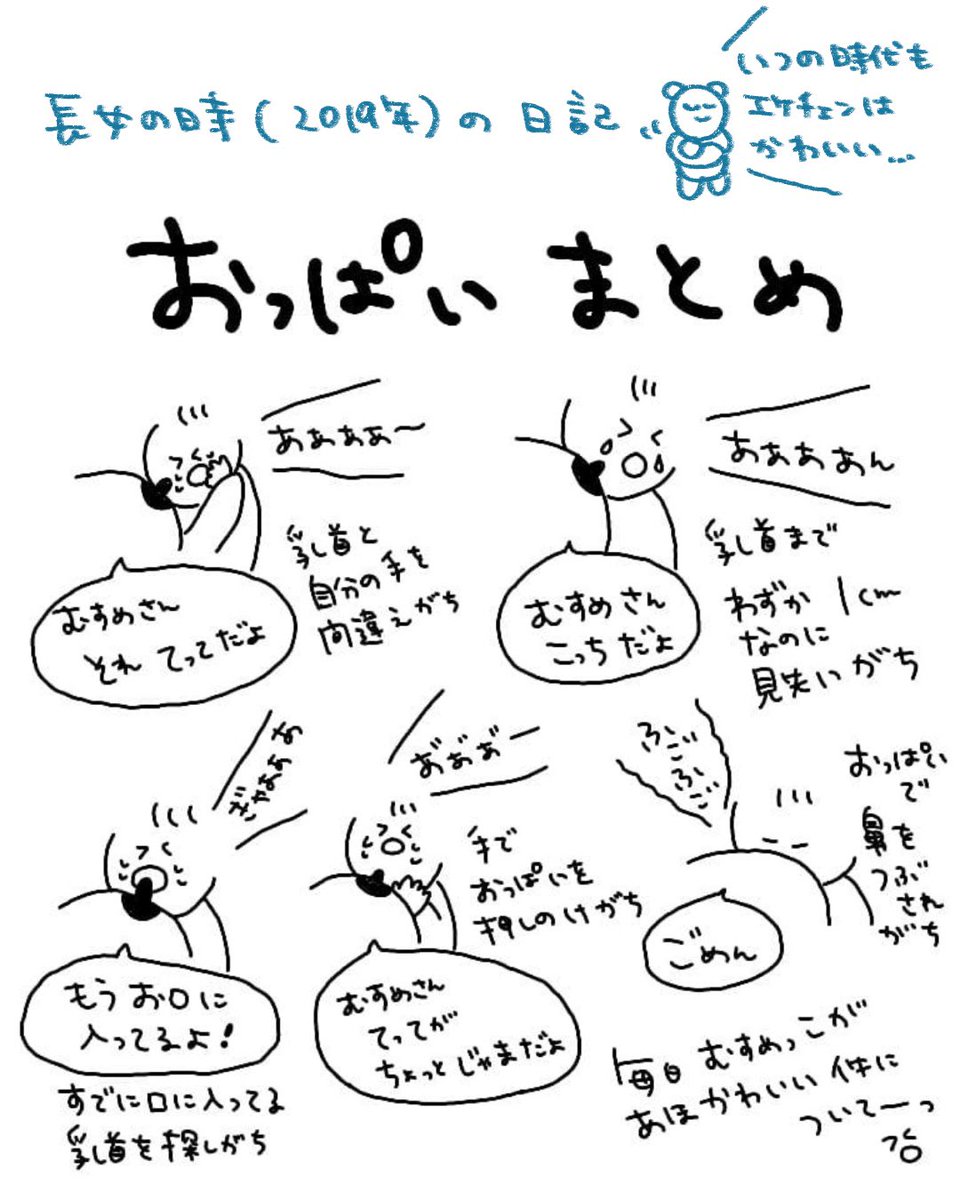 長女の時(2019年)の日記
いつの時代も
エケチェンは
かわいい…
おっぱいまとめ
ああああ〜
乳首と
自分の手を
間違えがち
むすめさん
それ てってだよ
ああああん
乳首まで
わずか1cm
なのに
見失いがち
むすめさん
こっちだよ
ぎゃあああ
もうお口に
入ってるよ!
すでに口に入ってる
乳首を探しがち
あ゛あ゛あ゛ー
手で
おっぱいを
押しのけがち
むすめさん
てってが
ちょっとじゃまだよ
ふごっ
ふご
おっぱい
で
鼻を
つぶ
され
がち
ごめん
毎日むすめっこが
あほかわいい件に
ついてーっ